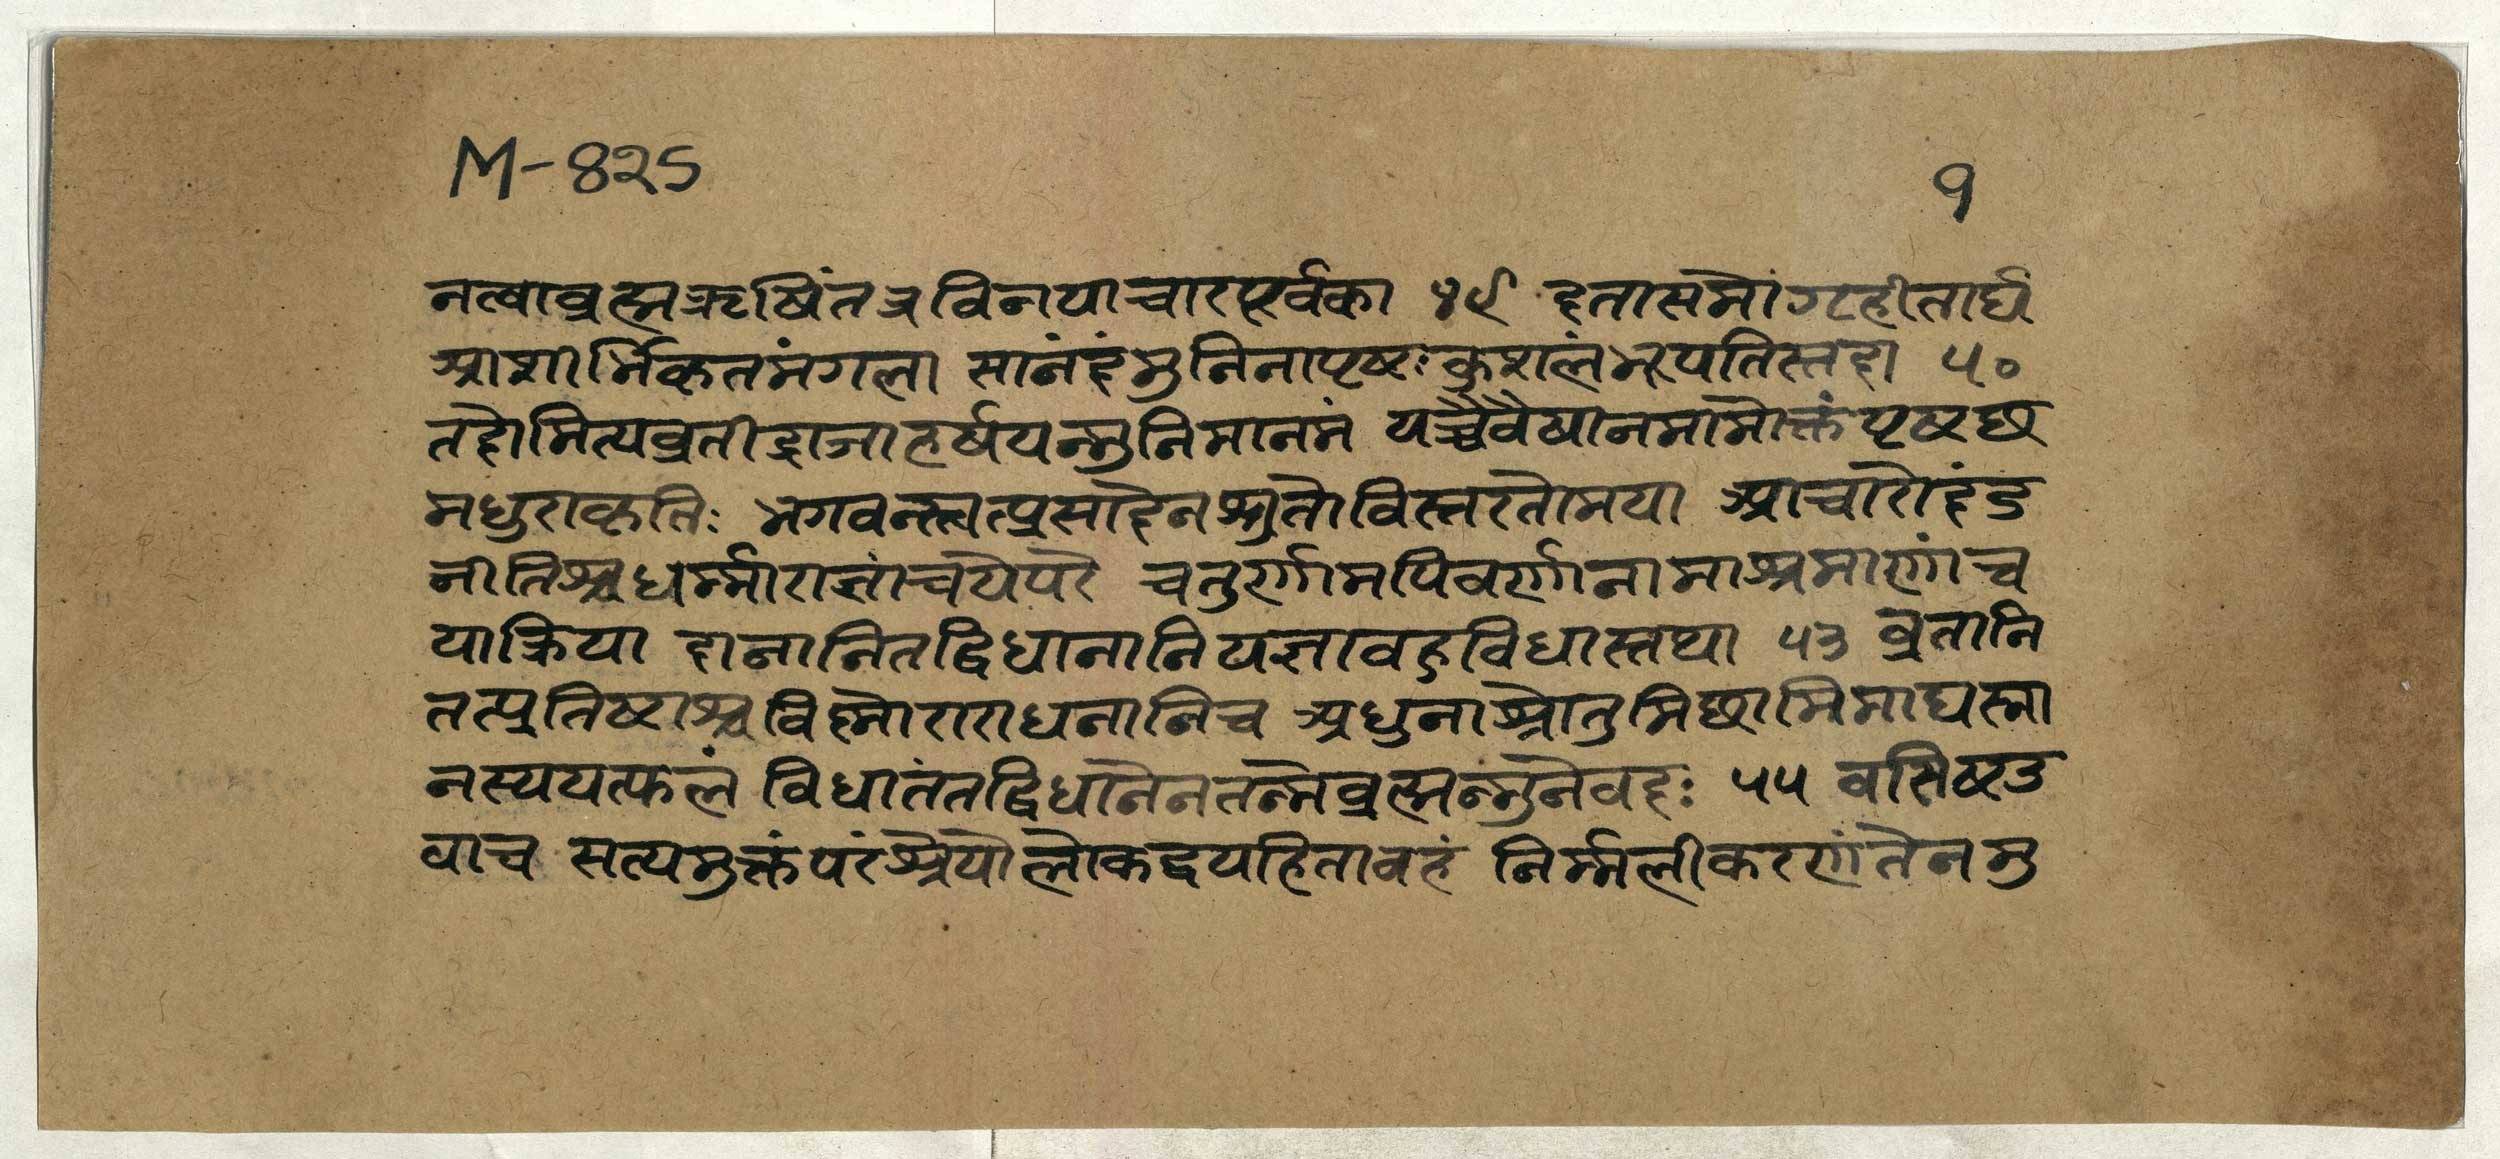 M-825 १
नत्वाब्रह्मऋषिंतत्रविनयाचारपूर्वका ४९ दतासनोगृहीतार्घ
आशीर्भिकृतमंगला सानंदंमुनिनापृष्टःकुशलंभूपतिस्तदा ५०
तदोमित्यव्रतीद्राजाहर्षयन्मुनिमानमं यच्चैवैषानमामोक्तंपृष्टछ
मधुराकृतिः भगवन्त्वत्प्रसादेनश्रुतोविस्तरतोमया आचारोदंड
नीतिश्चधर्म्माराज्ञांचयेपरे चतुर्णामपिवर्णानामाश्रमाणांच
याक्रिया दानानितद्विधानानियज्ञावहुविधास्तथा ५३ व्रतानि
तत्प्रतिष्टाश्चविष्णोराराधनानिच अधुनाश्रोतुमिछामिमाघस्ना
नस्ययत्फलं विधातंतद्विधानेनतन्मेब्रह्मन्मुनेवदः ५५ वसिष्टउ
वाच सत्यमुक्तंपरंश्रेयोलोकद्वयहितावहं निर्म्मलीकरणंतेनमु